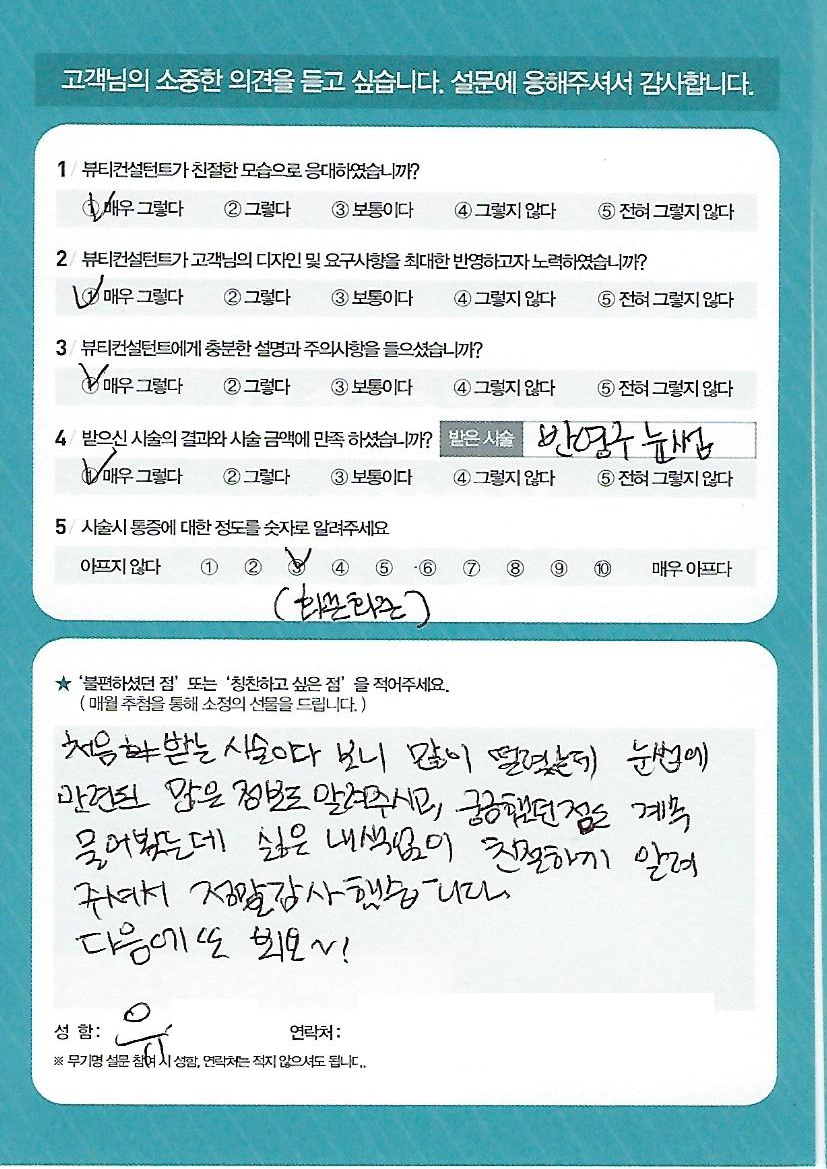 고객님의 소중한 의견을 듣고 싶습니다. 설문에 응해주셔서 감사합니다.
1 / 뷰티컨설턴트가 친절한 모습으로 응대하였습니까?
① 매우 그렇다 ② 그렇다 ③ 보통이다 ④ 그렇지 않다 ⑤ 전혀 그렇지 않다
2 / 뷰티컨설턴트가 고객님의 디자인 및 요구사항을 최대한 반영하고자 노력하였습니까?
① 매우 그렇다 ② 그렇다 ③ 보통이다 ④ 그렇지 않다 ⑤ 전혀 그렇지 않다
3 / 뷰티컨설턴트에게 충분한 설명과 주의사항을 들으셨습니까?
① 매우 그렇다 ② 그렇다 ③ 보통이다 ④ 그렇지 않다 ⑤ 전혀 그렇지 않다
4 / 받으신 시술의 결과와 시술 금액에 만족 하셨습니까? 받은 시술 반영구 눈썹
① 매우 그렇다 ② 그렇다 ③ 보통이다 ④ 그렇지 않다 ⑤ 전혀 그렇지 않다
5 / 시술시 통증에 대한 정도를 숫자로 알려주세요
아프지 않다 ① ② ③ ④ ⑤ ⑥ ⑦ ⑧ ⑨ ⑩ 매우 아프다
(화끈화끈)
★ '불편하셨던 점' 또는 '칭찬하고 싶은 점' 을 적어주세요.
( 매월 추첨을 통해 소정의 선물을 드립니다. )
처음 받는 시술이다 보니 많이 떨렸는데 눈썹에
관련된 많은 정보도 알려주시고, 궁금했던점도 계속
물어봤는데 싫은 내색없이 친절하게 알려
주셔서 정말감사했습니다.
다음에 또 뵈요~!
성 함 : 유
연락처 :
※ 무기명 설문 참여 시 성함, 연락처는 적지 않으셔도 됩니다..